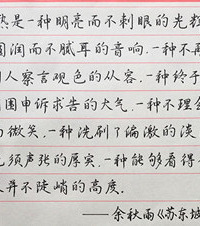 熟是一种明亮而不刺眼的光
圆润而不腻耳的音响,一种不再
别人察言观色的从容,一种终于
周围申诉求告的大气,一种不理会
的微笑,一种洗刷了偏激的淡
无须声张的厚实,一种能够看得
又并不陡峭的高度。
——余秋雨《苏东坡